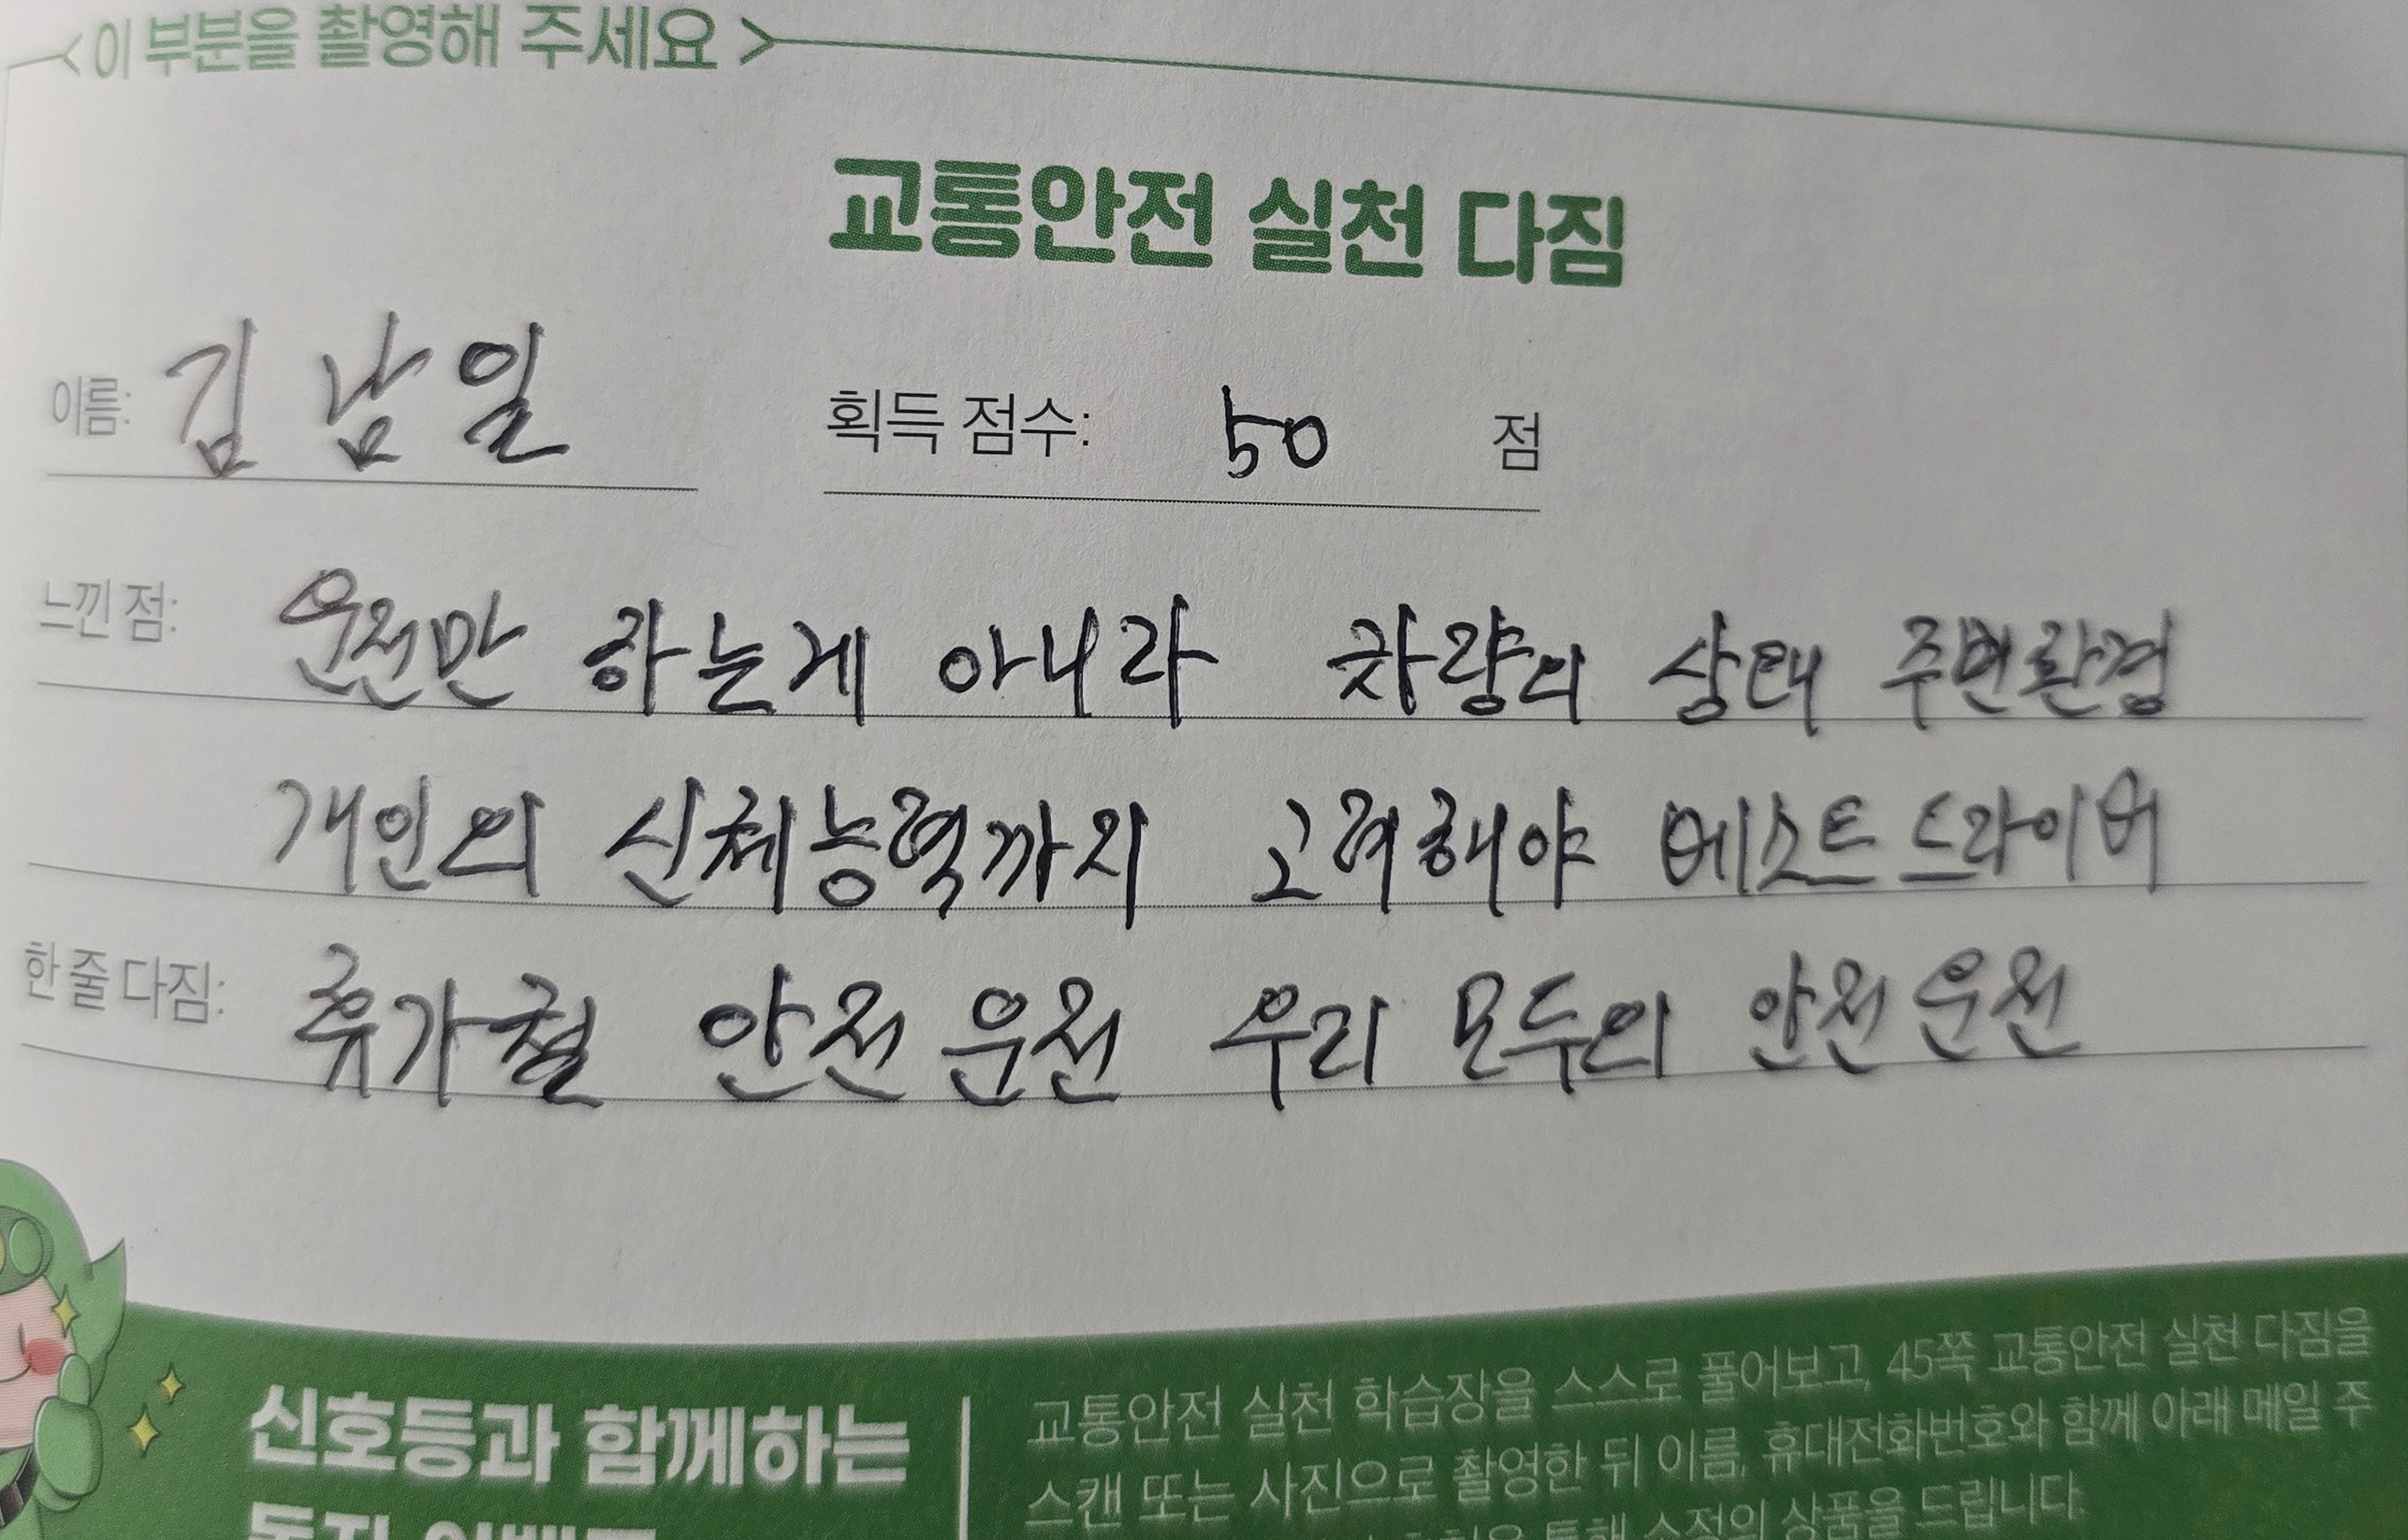 이 부분을 촬영해 주세요
교통안전 실천 다짐
이름: 김남일 획득 점수: 50 점
느낀 점: 운전만 하는게 아니라 차량의 상태 주변환경
개인의 신체능력까지 고려해야 베스트드라이버
한 줄 다짐: 휴가철 안전운전 우리 모두의 안전운전
신호등과 함께하는
교통안전 실천 학습장을 스스로 풀어보고, 45쪽 교통안전 실천 다짐을
스캔 또는 사진으로 촬영한 뒤 이름, 휴대전화번호와 함께 아래 메일 주
통해 소정의 상품을 드립니다.